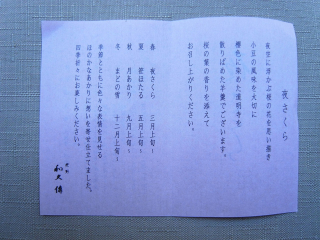 夜さくら
夜空に浮かぶ桜の花を思い描き
小豆の風味を大切に
桜色に染めた道明寺を
散りばめた羊羹でございます。
桜の葉の香りを添えて
お召し上がりください。
春　夜さくら　三月上旬～
夏　笹ほたる　五月上旬～
秋　月あかり　九月上旬～
冬　まどの雪　十二月上旬～
季節とともに色々な表情を見せる
ほのかなあかりに想いを寄せ仕立てました。
四季折々にお楽しみください。
和久傳